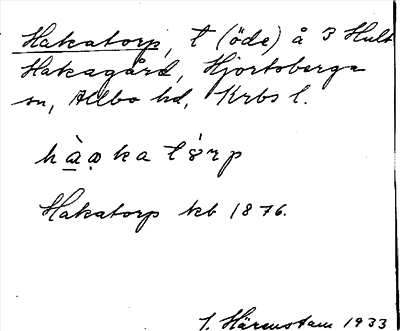 Hakatorp, t (öde) å 3 Hult
Hakagård, Hjortsberga
sn, Allbo hd, Krbs l.
hàọka tórp
Hakatorp kb 1876.
J. Härenstam 1933